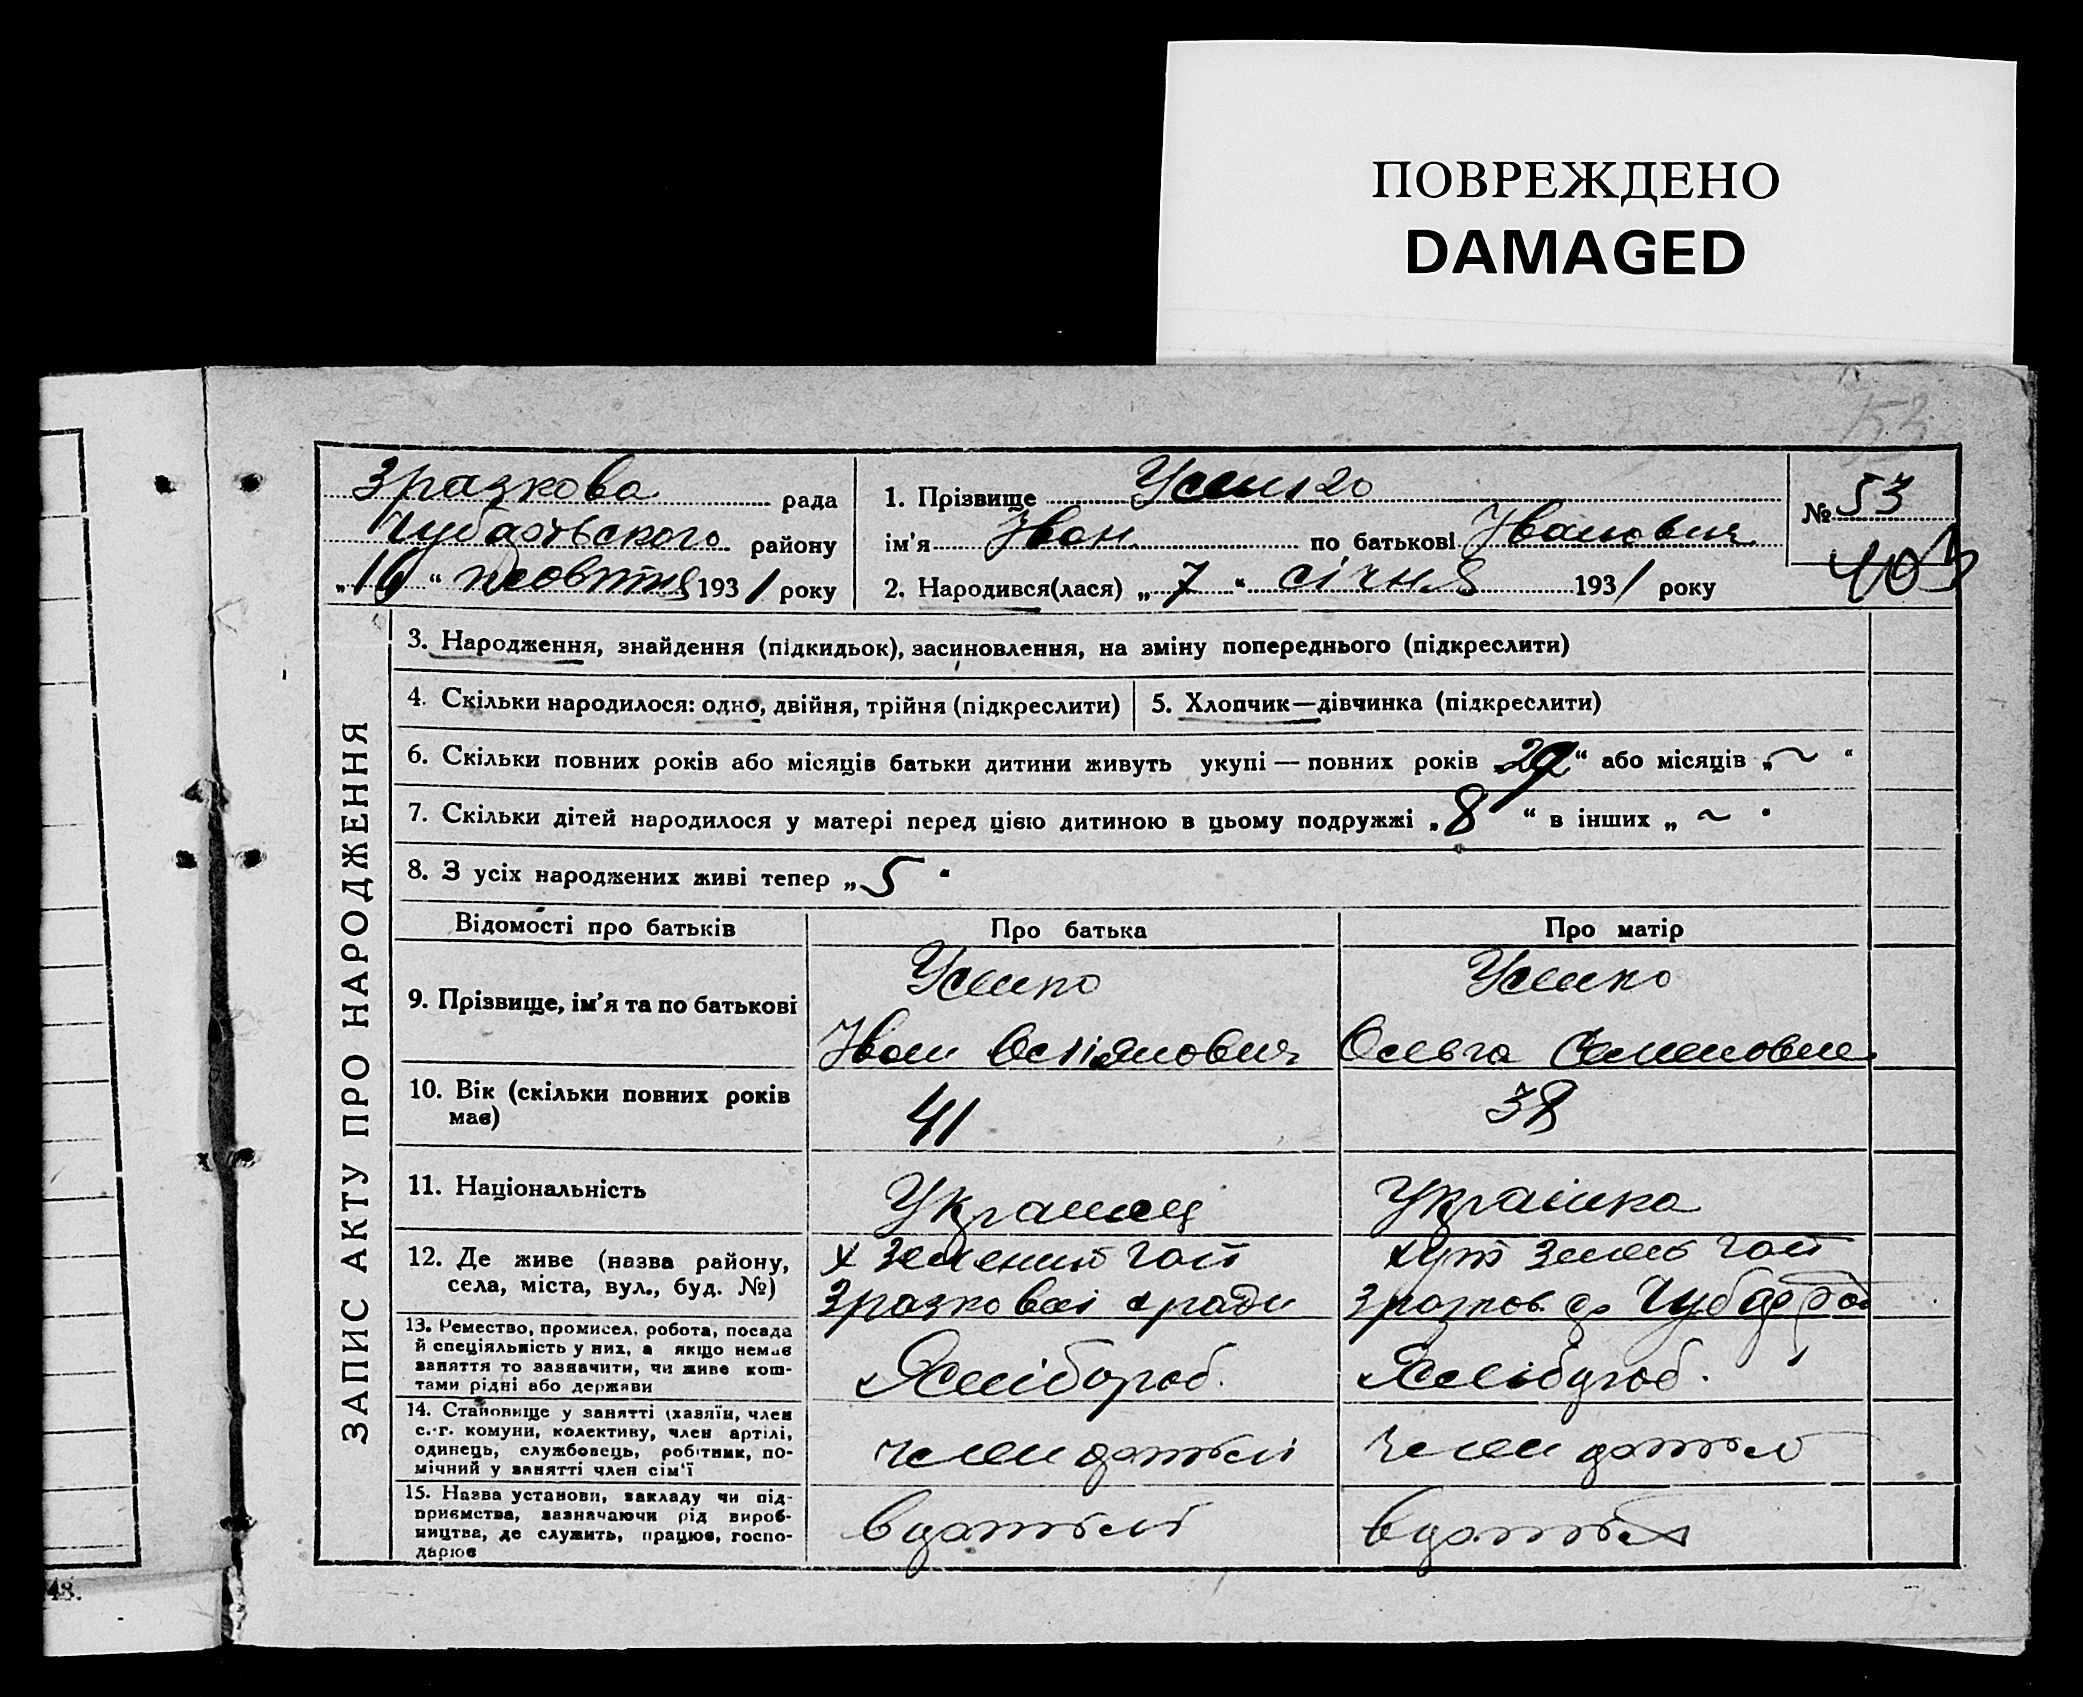 ПОВРЕЖДЕНО
DAMAGED
53
Зразкова рада
Чубарівського району
„16“ жовтня 1931 року
1. Прізвище Усенко
ім'я Іван по батькові Іванович
2. Народився(лася) „7“ січня 1931 року
№ 53
403
ЗАПИС АКТУ ПРО НАРОДЖЕННЯ
3. Народження, знайдення (підкидьок), засиновлення, на зміну попереднього (підкреслити)
4. Скільки народилося: одно, двійня, трійня (підкреслити)
5. Хлопчик—дівчинка (підкреслити)
6. Скільки повних років або місяців батьки дитини живуть укупі — повних років „29“ або місяців „~“
7. Скільки дітей народилося у матері перед цією дитиною в цьому подружжі „8“ в інших „~“
8. З усіх народжених живі тепер „5“
Відомості про батьків
Про батька
Про матір
9. Прізвище, ім'я та по батькові
Усенко
Іван
Усенко
Ольга Семеновна
10. Вік (скільки повних років
має)
41
38
11. Національність
Українец
Українка
12. Де живе (назва району,
села, міста, вул., буд. №)
х Зелений Гай
Зразковоі с ради
хут Зелен Гай
Зразков с Чубар
13. Ремество, промисел, робота, посада
й спеціяльність у них, а якщо немає
заняття то зазначити, чи живе кош-
тами рідні або держави
Хліборob.
Хліборob.
14. Становище у занятті (хазяїн, член
с.-г. комуни, колективу, член артілі,
одинець, службовець, робітник, по-
мічний у занятті член сім'ї
член артілі
член артіл
15. Назва установи, закладу чи під-
приємства, зазначаючи рід вироб-
ництва, де служить, працює, госпо-
дарює
в артілі
в артіл
48.